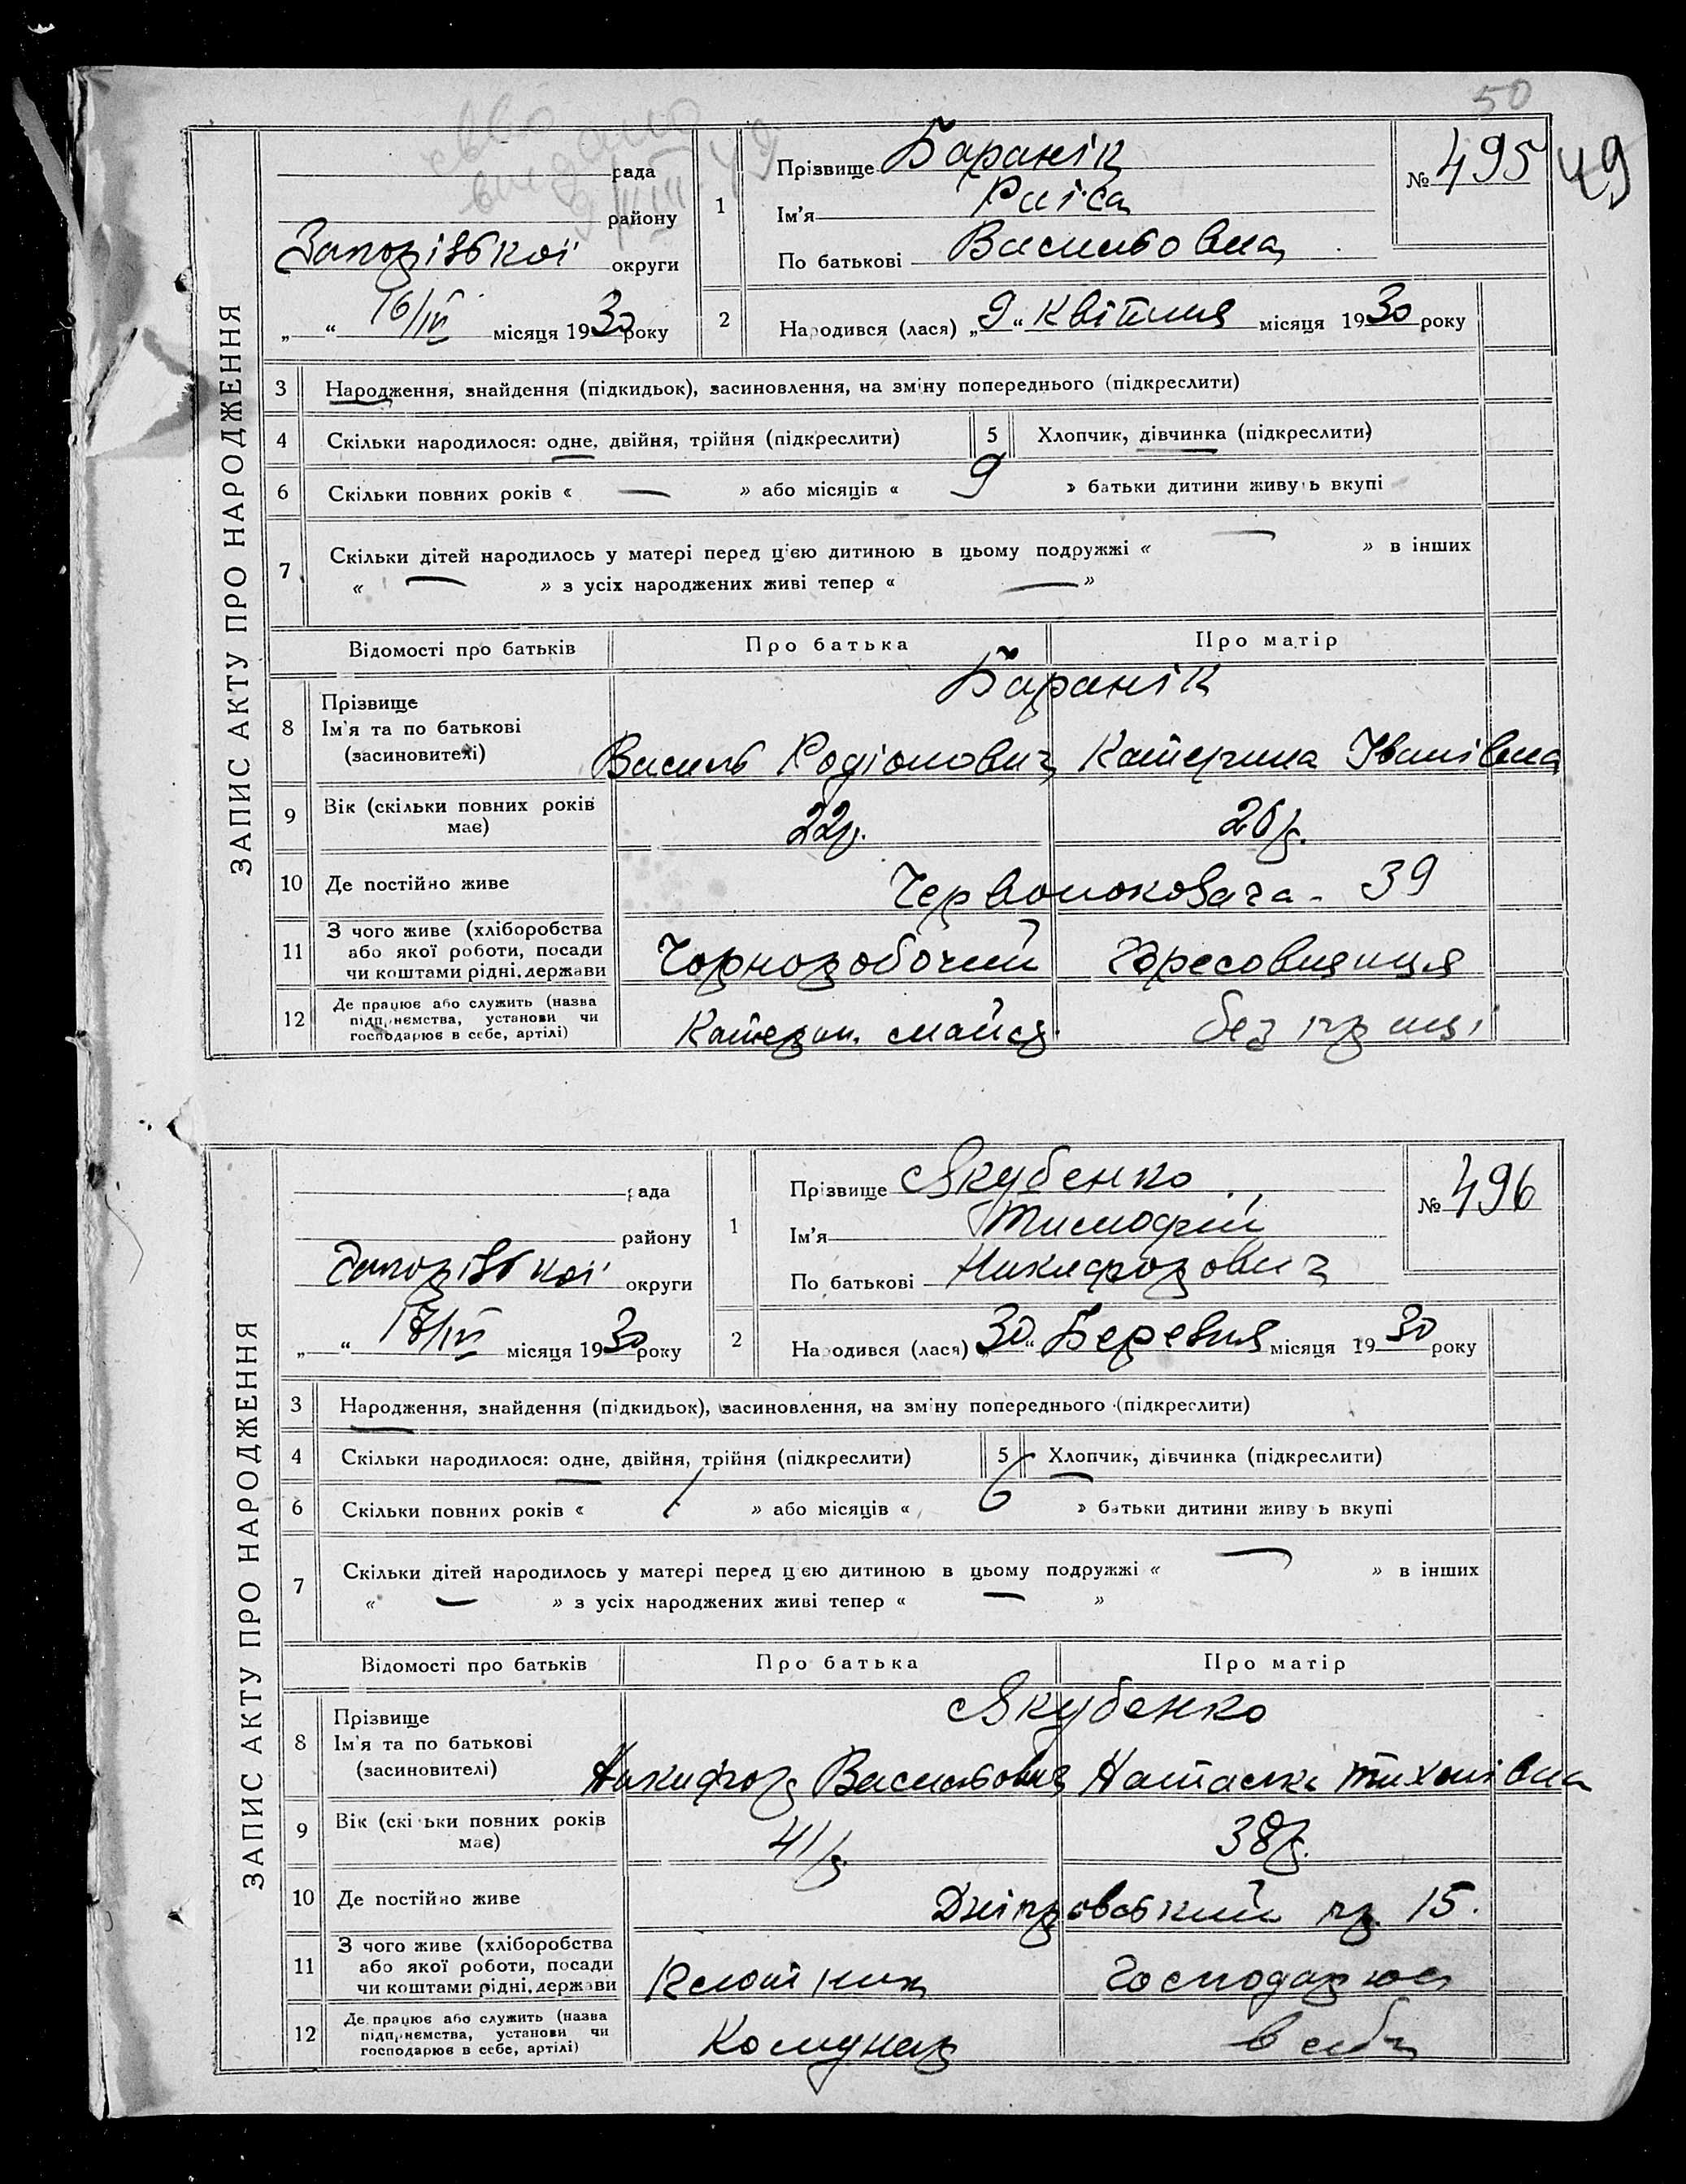 50
49
ЗАПИС АКТУ ПРО НАРОДЖЕННЯ
рада
району
Запорізької округи
„ “ 16/IV місяця 1930 року
1
Прізвище Баранік
Ім'я Раїса
По батькові Васильовна
№ 495
2 Народився (лася) „9“ квітня місяця 1930 року
3 Народження, знайдення (підкидьок), засиновлення, на зміну попереднього (підкреслити)
4 Скільки народилося: одне, двійня, трійня (підкреслити) 5 Хлопчик, дівчинка (підкреслити)
6 Скільки повних років « — » або місяців « 9 » батьки дитини живуть вкупі
7 Скільки дітей народилось у матері перед цією дитиною в цьому подружжі « — » в інших
« — » з усіх народжених живі тепер « — »
Відомості про батьків Про батька Про матір
8 Прізвище Баранік
Ім'я та по батькові
(засновителі) Василь Родіонович Катерина Іванівна
9 Вік (скільки повних років має) 22р. 26р.
10 Де постійно живе Червонокозача - 39
11 З чого живе (хліборобства
або якої роботи, посади
чи коштами рідні, держави Чорноробочий
12 Де працює або служить (назва
підприємства, установи чи
господарює в себе, артілі) Катерин. майст. без праці
ЗАПИС АКТУ ПРО НАРОДЖЕННЯ
рада
району
Запорізької округи
„ “ 17/IV місяця 1930 року
1
Прізвище Якубенко
Ім'я Тимофій
По батькові Никифорович
№ 496
2 Народився (лася) „30“ Березня місяця 1930 року
3 Народження, знайдення (підкидьок), засиновлення, на зміну попереднього (підкреслити)
4 Скільки народилося: одне, двійня, трійня (підкреслити) 5 Хлопчик, дівчинка (підкреслити)
6 Скільки повних років « 1 » або місяців « 6 » батьки дитини живуть вкупі
7 Скільки дітей народилось у матері перед цією дитиною в цьому подружжі « — » в інших
« — » з усіх народжених живі тепер « — »
Відомості про батьків Про батька Про матір
8 Прізвище Якубенко
Ім'я та по батькові
(засиновителі) Никифор Васильович Наталка Тихонівна
9 Вік (скільки повних років має) 41р. 38р.
10 Де постійно живе Дніпровський пр. 15.
11 З чого живе (хліборобства
або якої роботи, посади
чи коштами рідні, держави Клотник Господарює
12 Де працює або служить (назва
підприємства, установи чи
господарює в себе, артілі) Комунар в себе